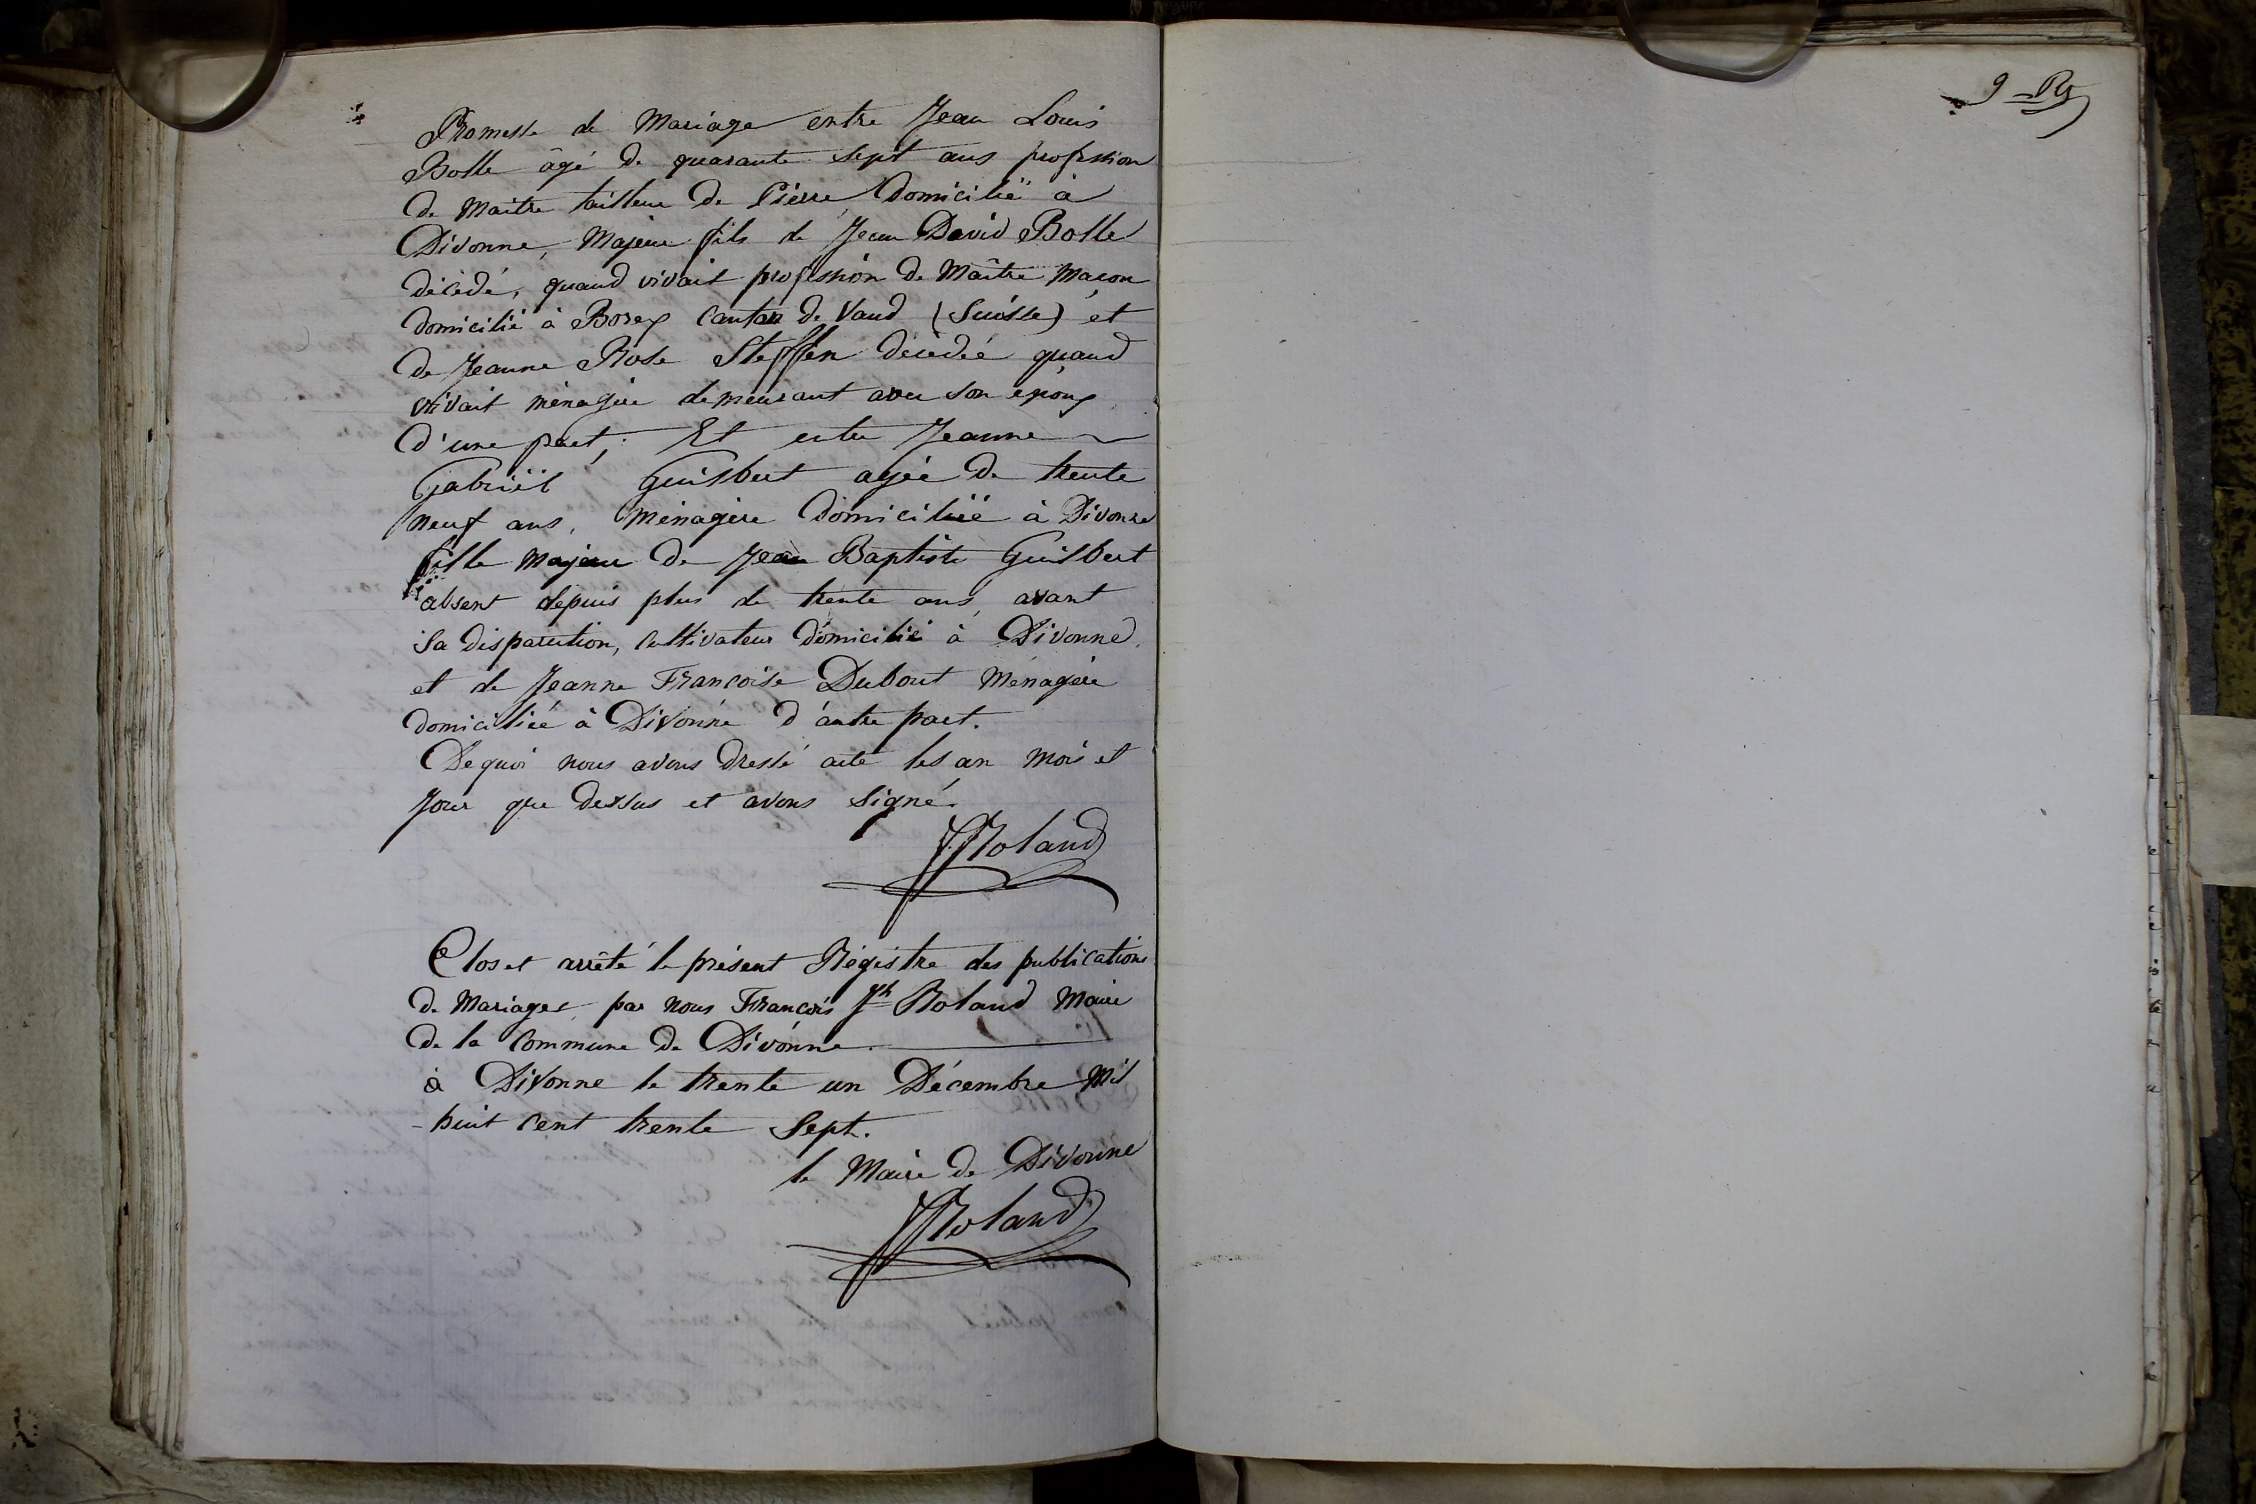 Promesse de Mariage entre Jean Louis
Bolle âgé de quarante sept ans profession
de Maitre tailleur de Pierre Domicilié à
Divonne, Majeur fils de Jean David Bolle
décédé, quand vivait profession de Maître Maçon
domicilié à Borex Canton de Vaud (Suisse) et
de Jeanne Rose Steffen décédée quand
vivait ménagère demeurant avec son époux
d'une part; Et entre Jeanne
Gabriël Guilbert agée de trente
neuf ans, ménagère Domiciliée à Divonne
fille Majeur de Jean Baptiste Guilbert
absent depuis plus de trente ans, avant
sa disparution, cultivateur domicilié à Divonne
et de Jeanne Francoise Dubout Ménagère
domiciliée à Divonne d'autre part.
De quoi nous avons dressé acte les an mois et
jour que dessus et avons signé.
Roland
Clos et arrêté le présent Régistre des publications
de Mariages par nous Francois Jh Roland Maire
de la Commune de Divonne.
à Divonne le trente un Décembre Mil
-huit cent trente Sept.
le Maire de Divonne
Roland
9